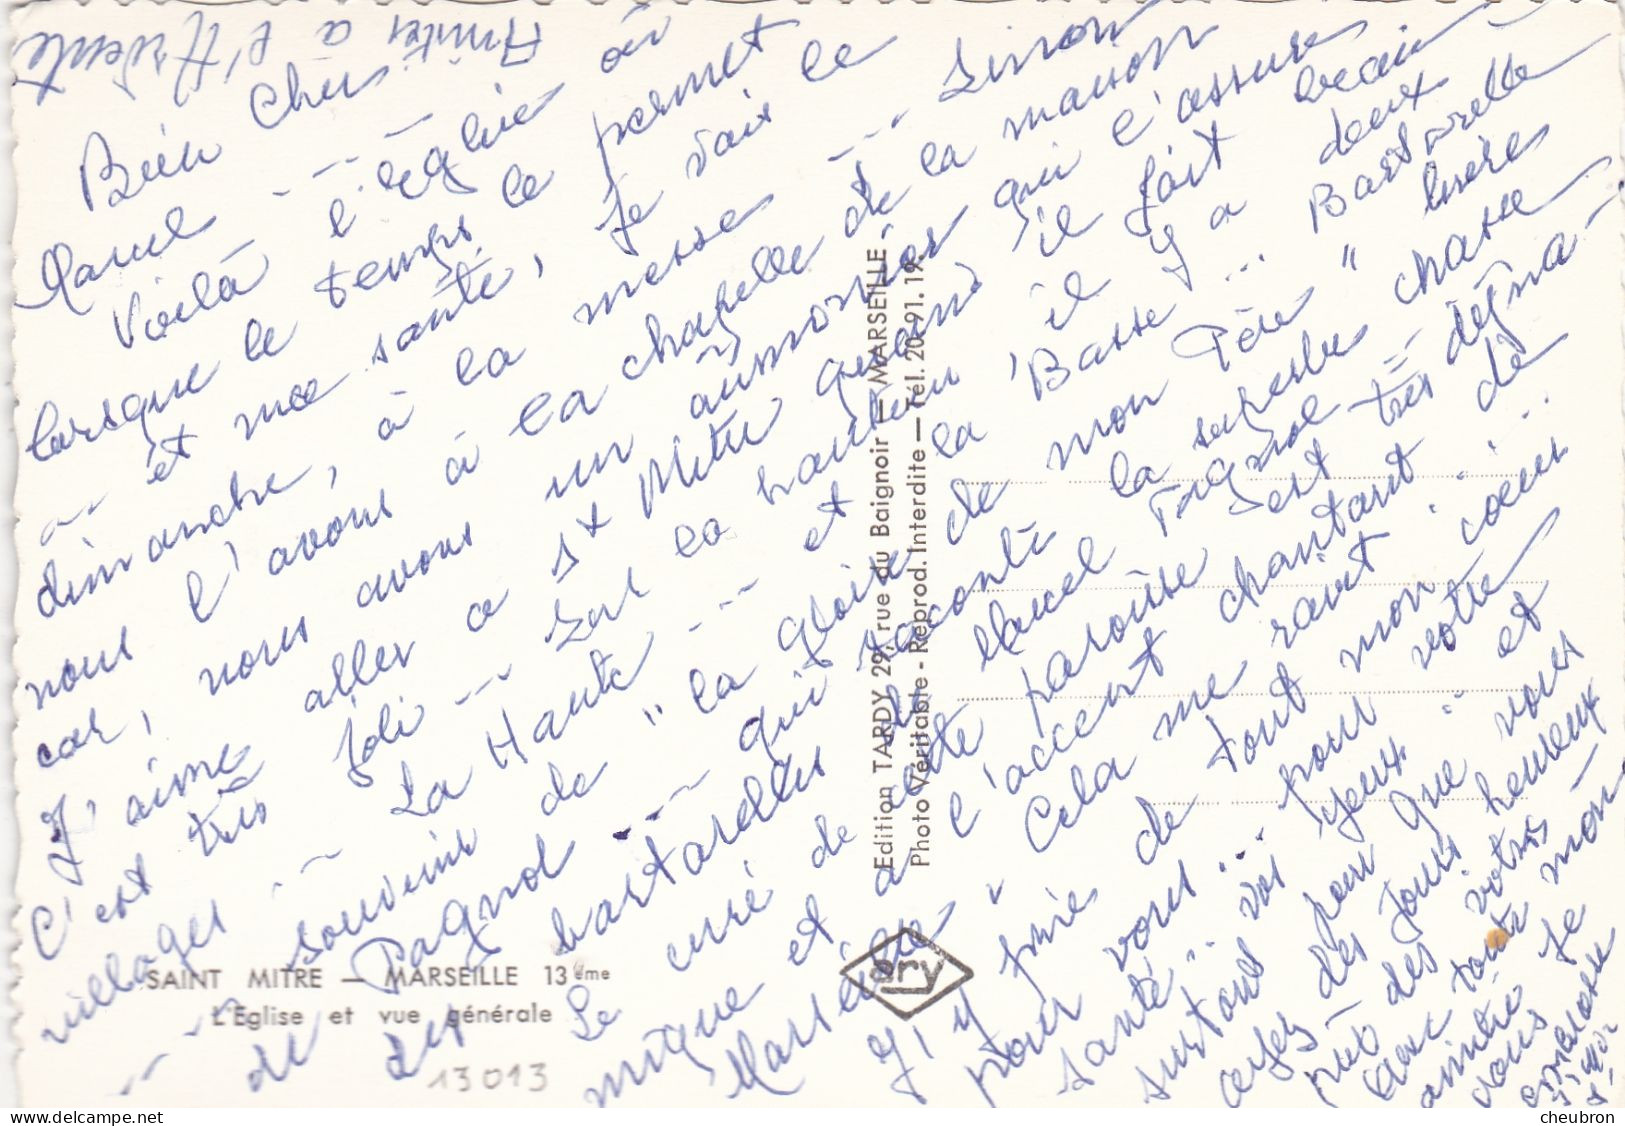 Amitiés à l'Ardente
Bien Cher
Marcel ---
Voilà l'église où
lorsque le temps le permet
et ma santé, je vais le
dimanche, à la messe ---
nous l'avons à la chapelle de la maison
car, nous avons un aumônier qui l'assure
J'aime aller à St Mitre quand il fait beau
C'est très joli --- sur la hauteur il y a deux
villages : La Haute --- et la Basse ...
--- souvenir de "la gloire de mon Père"
de Pagnol --- qui raconte la superbe chasse
des bartavelles de Marcel Pagnol
Le curé de cette paroisse est très
et a l'accent chantant de
Marseille" Cela me ravit ...
J'y prie de tout mon cœur
pour vous ... pour votre
santé ... vos yeux ... et
surtout pour que vous
ayez des jours heureux
avec toute votre
amitié Je
vous embrasse
SAINT MITRE — MARSEILLE 13ème
L'Eglise et vue générale
13013
Edition TARDY 29, rue du Baignoir — MARSEILLE
Photo Véritable - Reprod. Interdite — Tél. 20.91.19.
cheubron